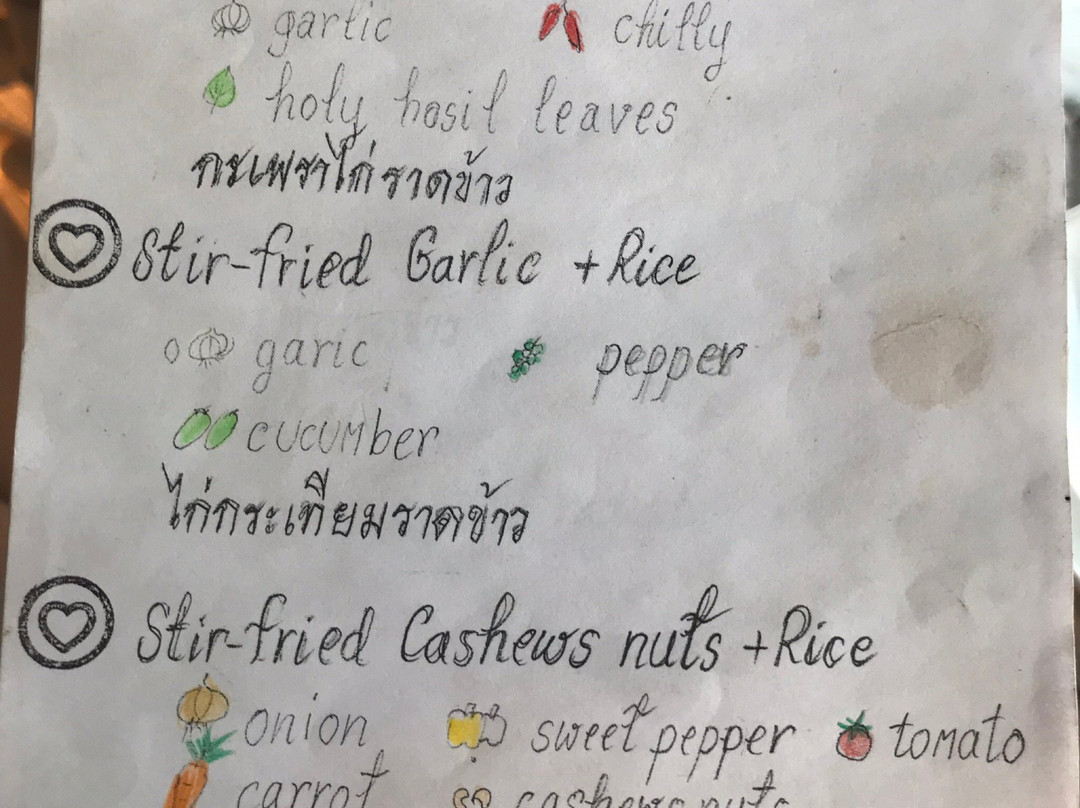 garlic chilly
holy basil leaves
กระเพราไก่ราดข้าว
Stir-fried Garlic +Rice
garic pepper
cucumber
ไก่กระเทียมราดข้าว
Stir-fried Cashews nuts +Rice
onion sweet pepper tomato
carrot cashews nuts